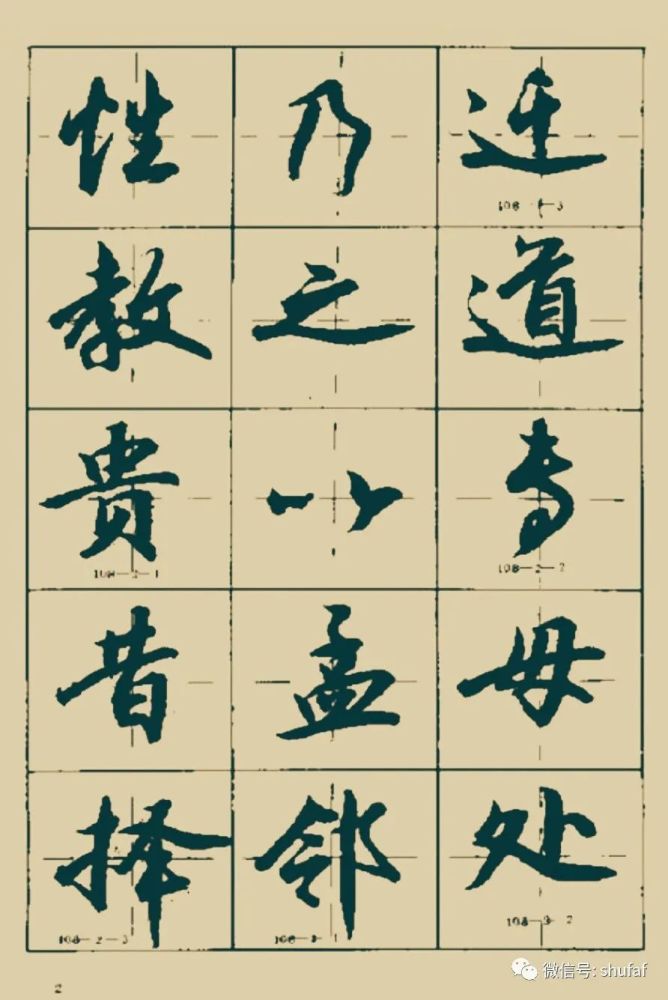 性乃迁
教之道
贵以专
昔孟母
择邻处
108-1-3
108-2-1
108-2-2
108-2-3
108-3-1
108-3-2
2
微信号: shufaf